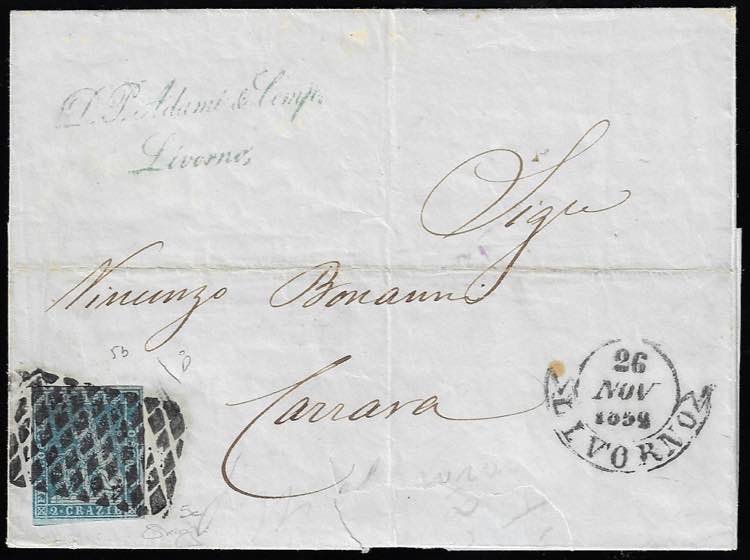 D. P. Adami & Comp.
Livorno,
Sigre
Vincenzo Bonanni
Carrara
26
NOV
LIVORNO
2·CRAZIE
5b